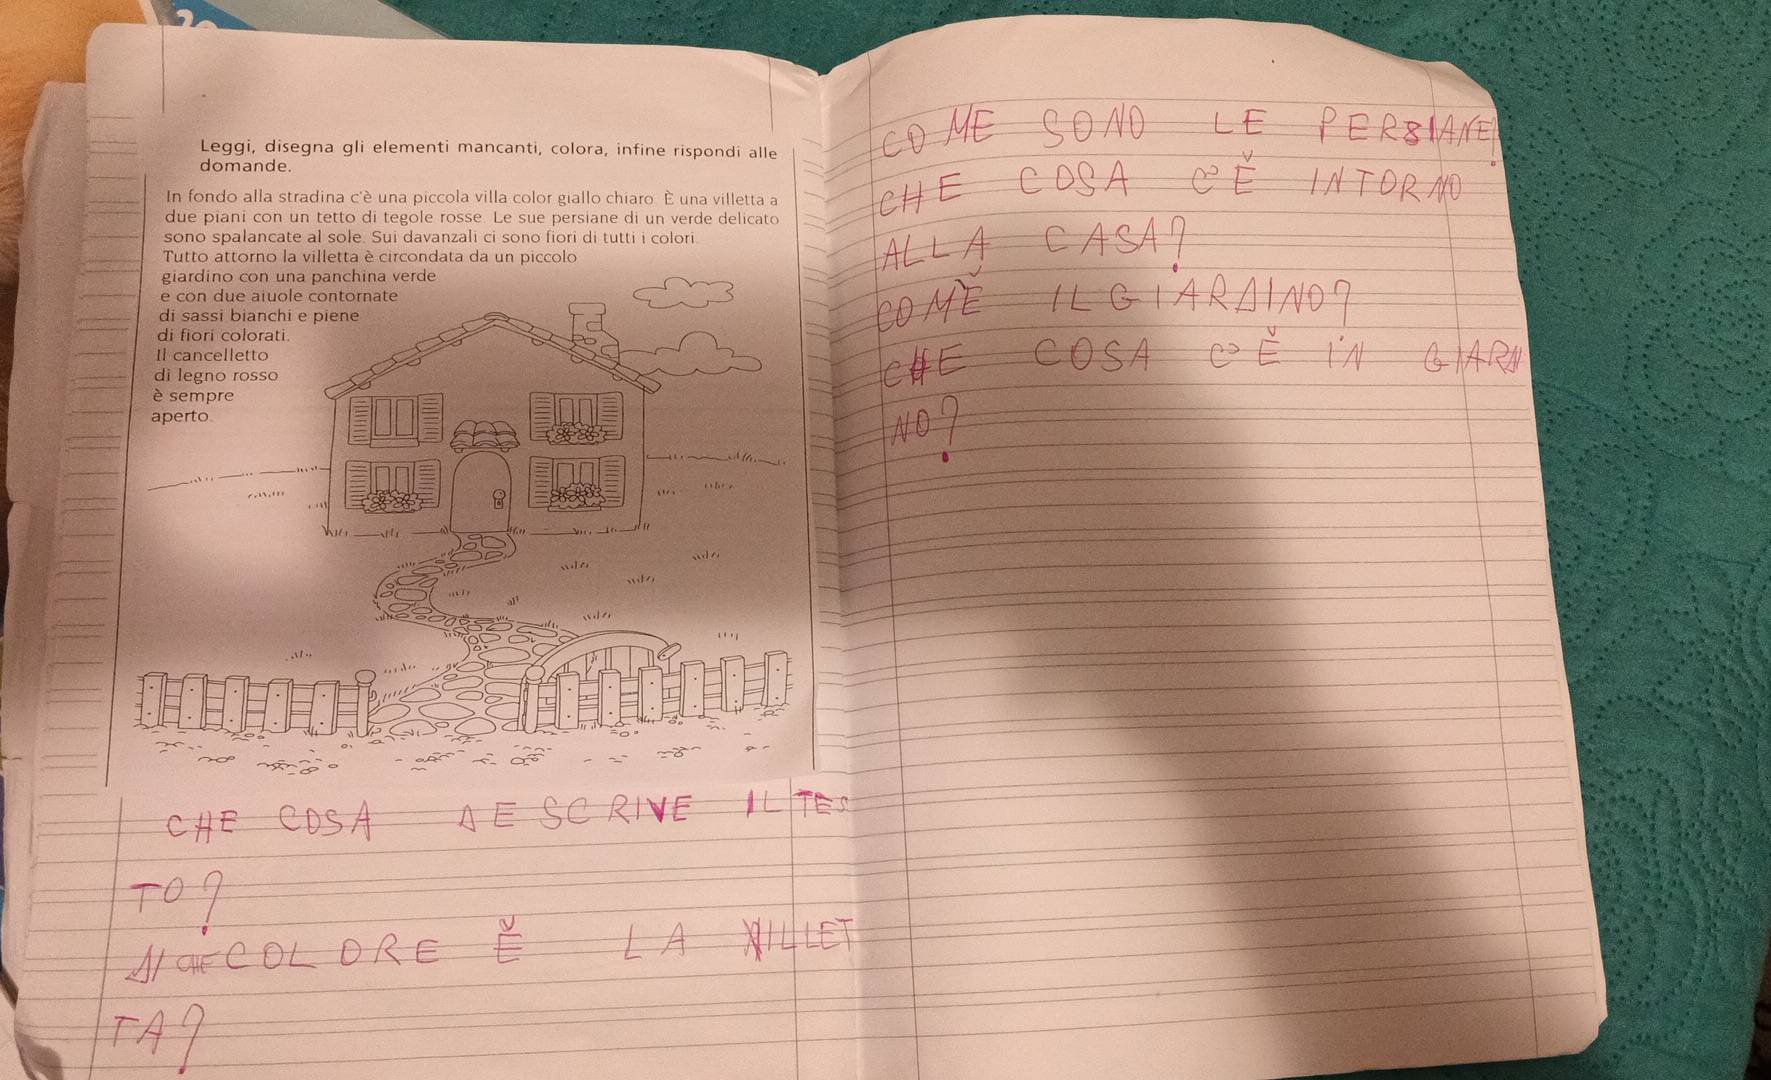 Leggi, disegna gli elementi mancanti, colora, infine rispondi alle
domande.
In fondo alla stradina c'è una piccola villa color giallo chiaro. È una villetta a
due piani con un tetto di tegole rosse. Le sue persiane di un verde delicato
sono spalancate al sole. Sui davanzali ci sono fiori di tutti i colori.
Tutto attorno la villetta è circondata da un piccolo
giardino con una panchina verde
e con due aiuole contornate
di sassi bianchi e piene
di fiori colorati.
Il cancelletto
di legno rosso
è sempre
aperto.
CHE COSA DESCRIVE IL TES
TO?
DI CHE COLORE È LA VILLET
TA?
COME SONO LE PERSIANE?
CHE COSA C'È INTORNO
ALLA CASA?
COM'È IL GIARDINO?
CHE COSA C'È IN GIARN
NO?